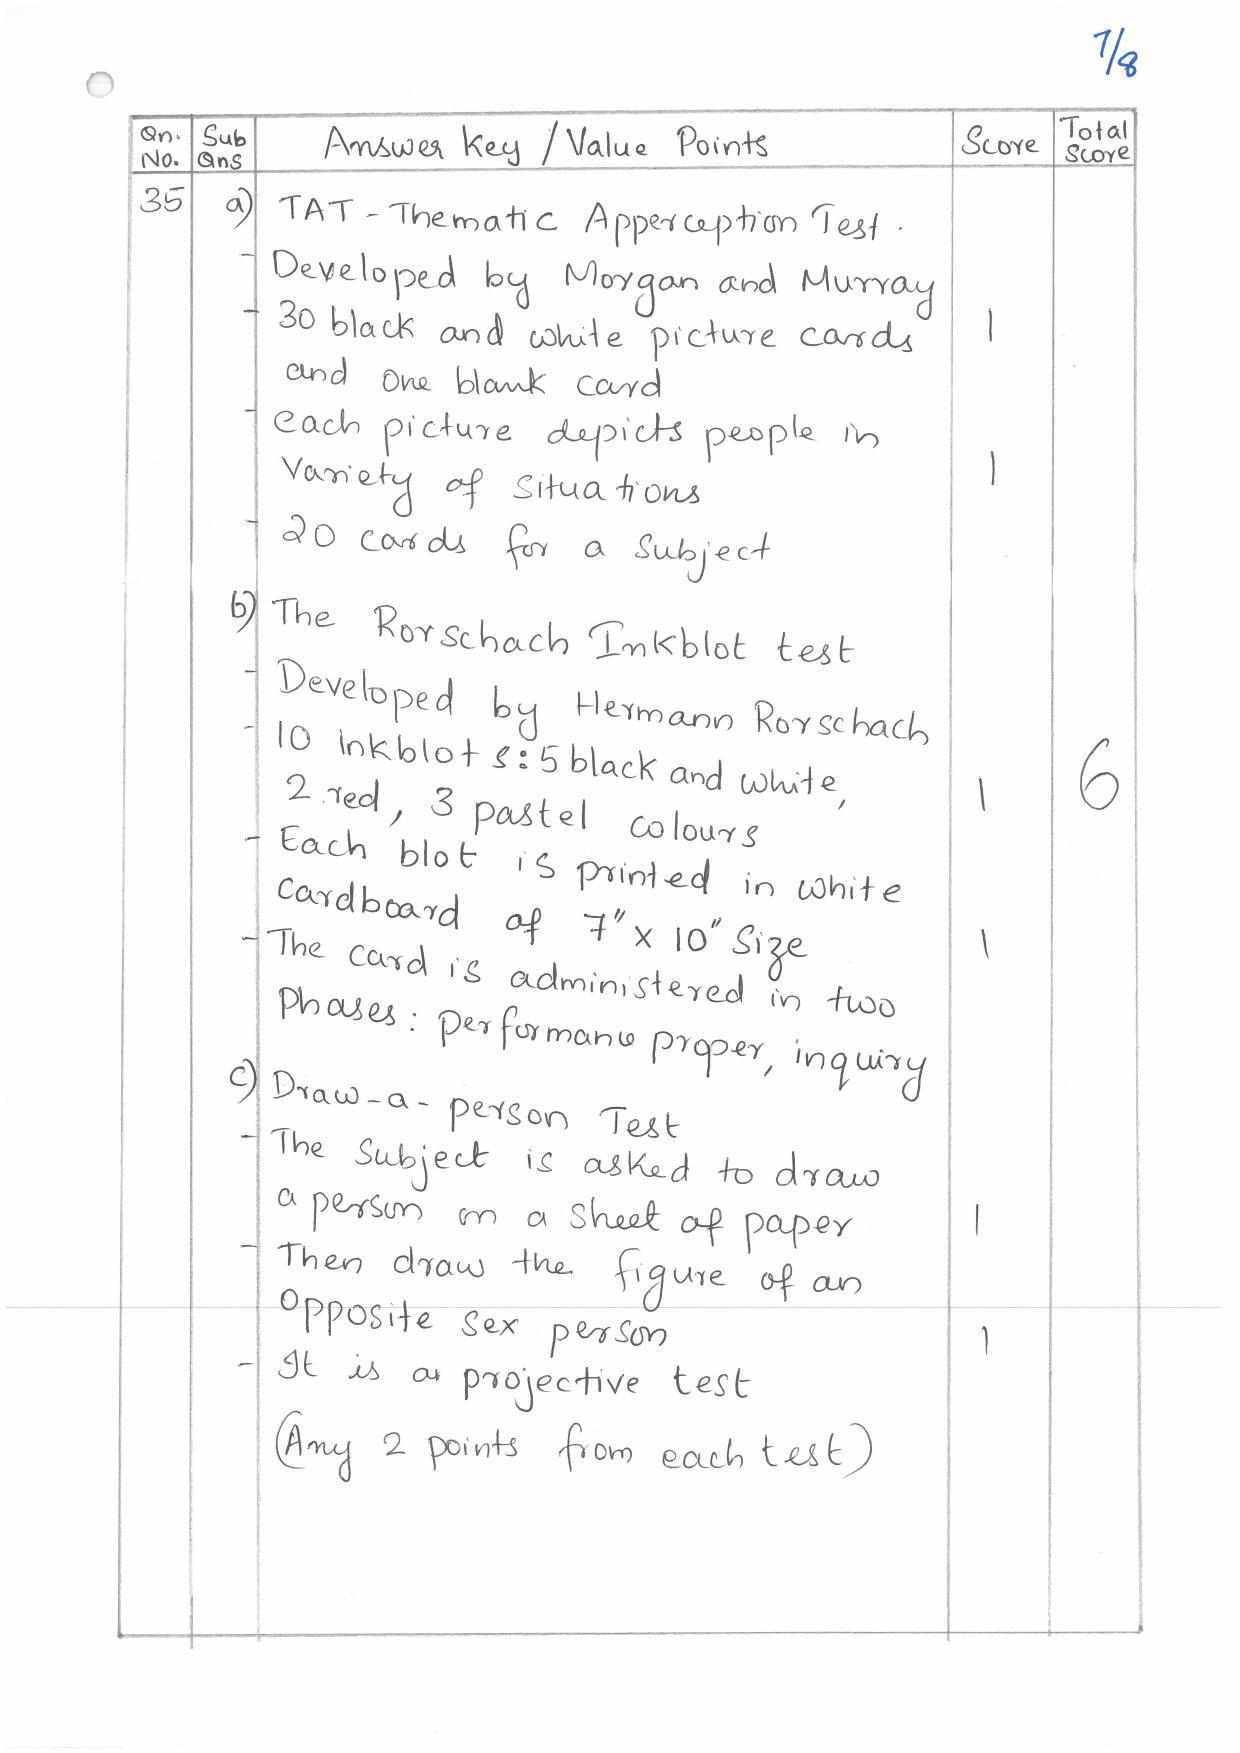 7/8
Qn. No. Sub Qns Answer Key / Value Points Score Total Score
35 a) TAT - Thematic Apperception Test.
- Developed by Morgan and Murray
- 30 black and white picture cards 1
and one blank card
- each picture depicts people in
Variety of situations 1
- 20 cards for a subject
b) The Rorschach Inkblot test
- Developed by Hermann Rorschach
- 10 inkblots: 5 black and white,
2 red, 3 pastel colours 1 6
- Each blot is printed in white
cardboard of 7" x 10" Size 1
- The card is administered in two
Phases: performance proper, inquiry
c) Draw-a-person Test
- The Subject is asked to draw
a person on a sheet of paper 1
- Then draw the figure of an
opposite sex person 1
- It is a projective test
(Any 2 points from each test)